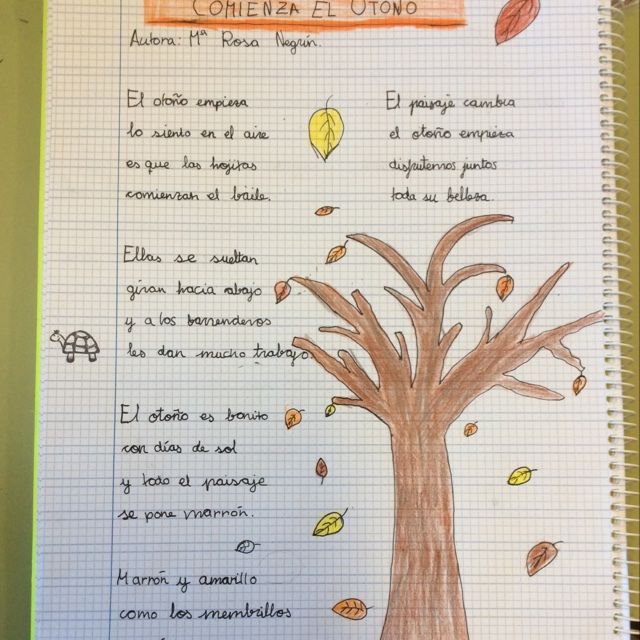 COMIENZA EL OTOÑO
Autora: Mª Rosa Negrín.
El otoño empieza
lo siento en el aire
es que las hojitas
comienzan el baile.
Ellas se sueltan
giran hacia abajo
y a los barrenderos
les dan mucho trabajo.
El otoño es bonito
con días de sol
y todo el paisaje
se pone marrón.
Marrón y amarillo
como los membrillos
El paisaje cambia
el otoño empieza
disfrutemos juntos
toda su belleza.